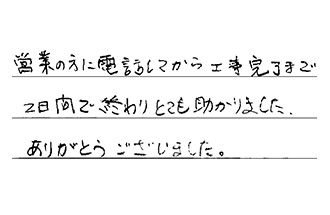 営業の方に電話してから工事完了まで
2日間で終わりとても助かりました.
ありがとうございました。